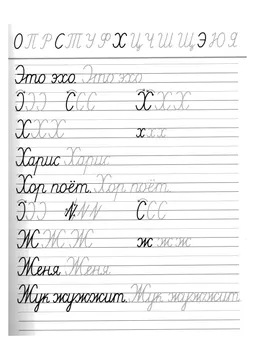 О П Р С Т У Ф Х Ц Ч Ш Щ Э Ю Я
Это эхо. Это эхо.
Э Э Э С С С Х Х Х
Х Х Х х х х
Харис Харис
Хор поёт. Хор поёт.
С С С
Ж Ж Ж ж ж ж
Женя Женя
Жук жужжит. Жук жужжит.